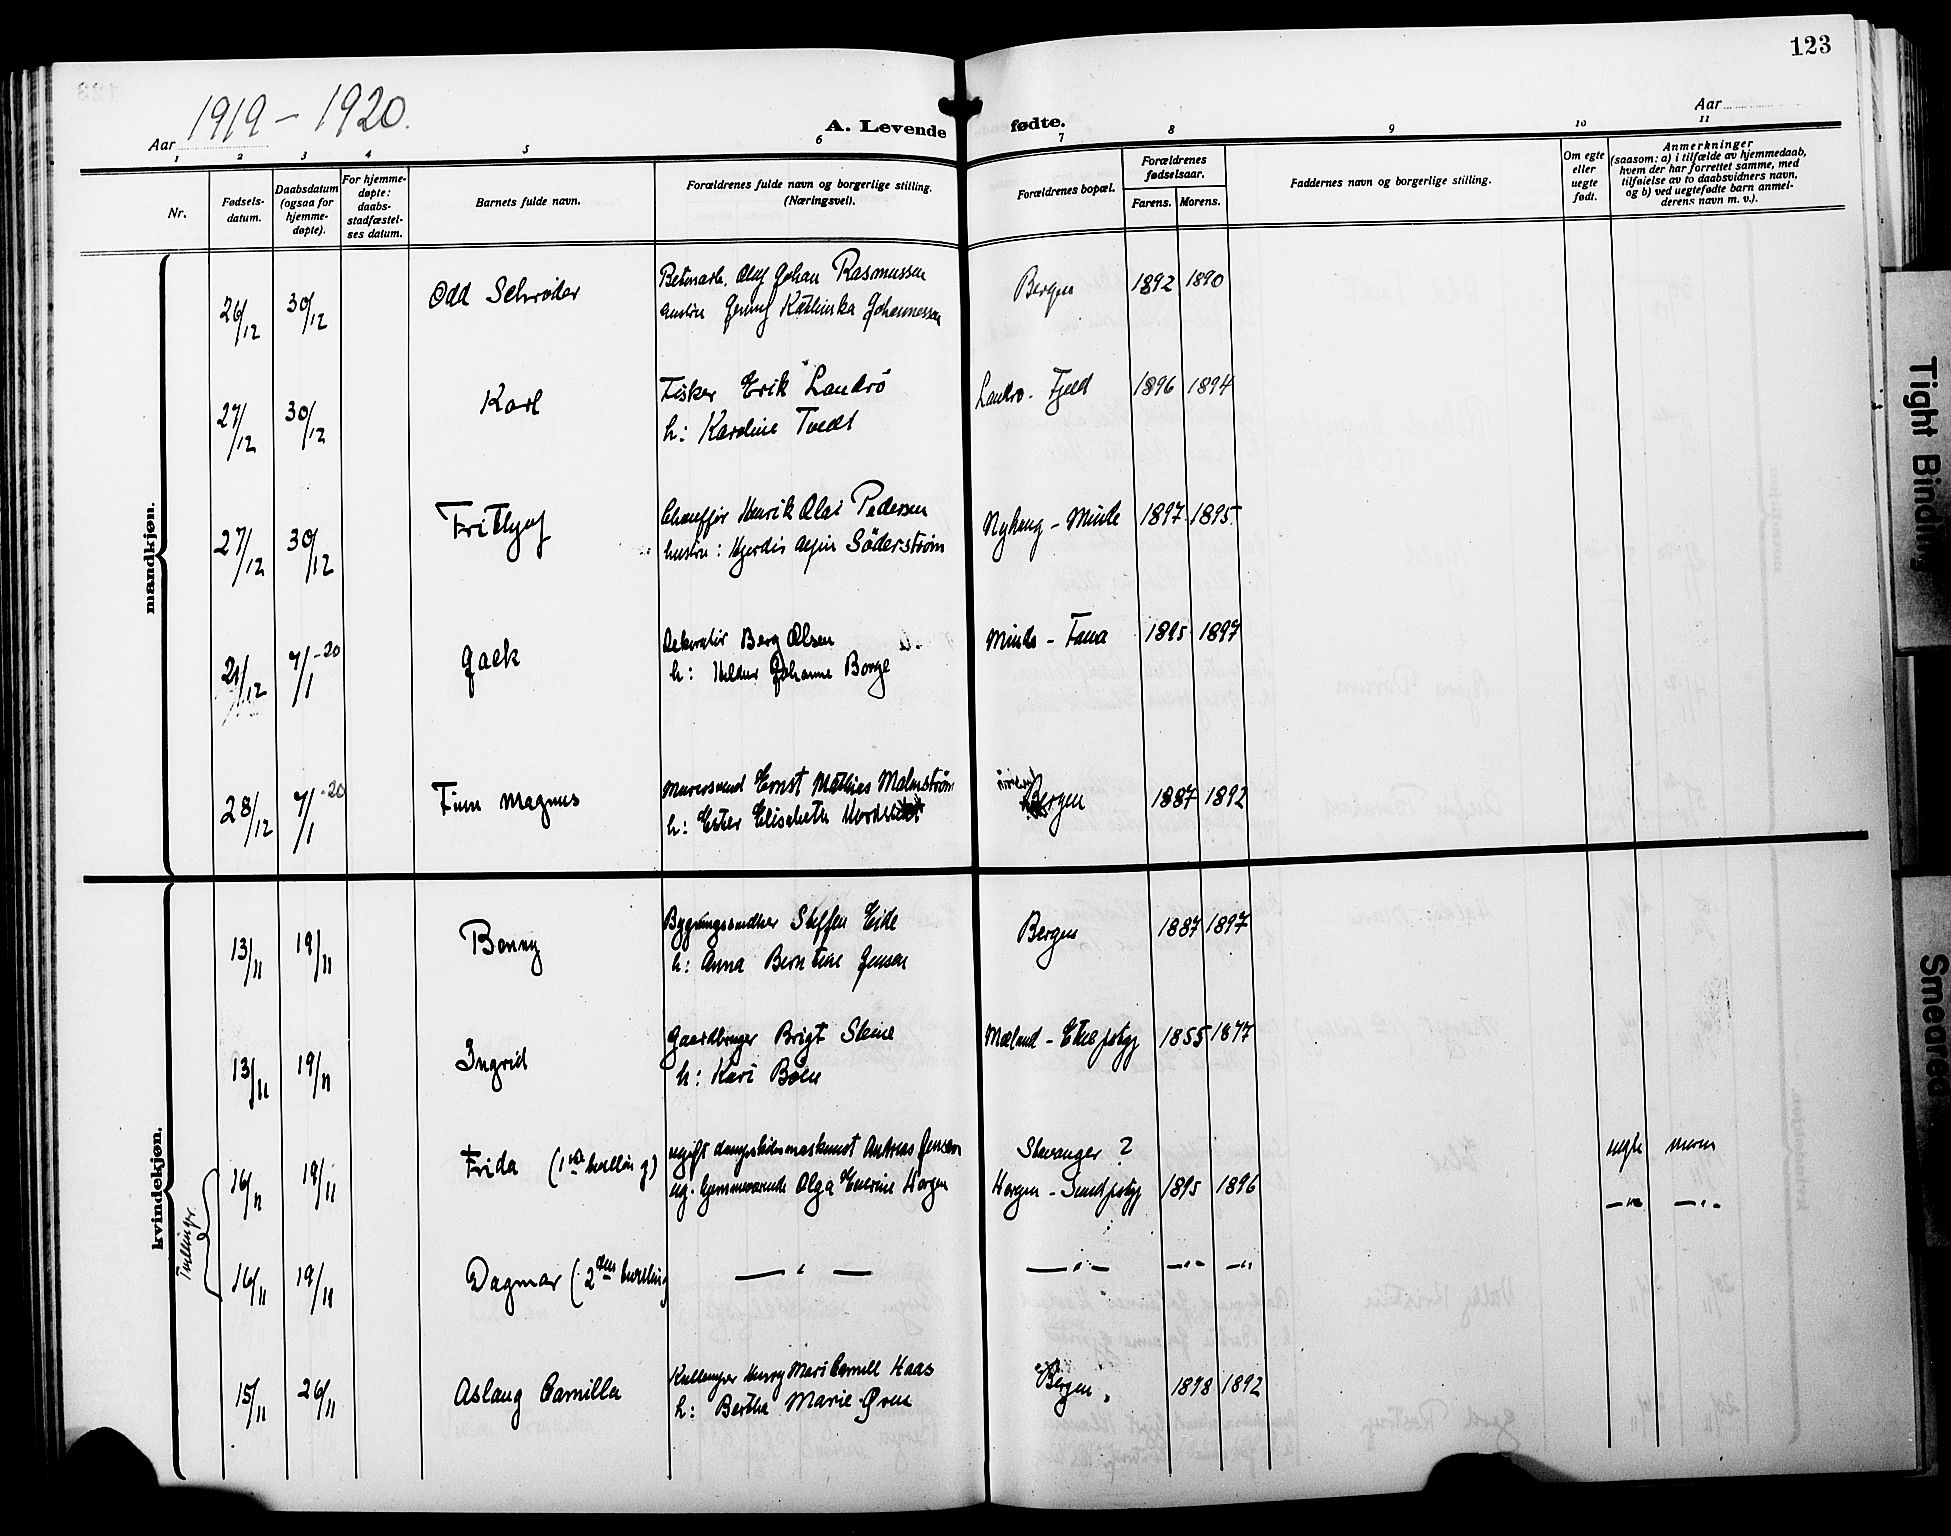 123
Aar 1919 – 1920.
A. Levende fødte.
Aar
1 2 3 4 5 6 7 8 9 10 11
Nr.
Fødsels-
datum.
Daabsdatum
(ogsaa for
hjemme-
døpte).
For hjemme-
døpte:
daabs-
stadfæstel-
ses datum.
Barnets fulde navn.
Forældrenes fulde navn og borgerlige stilling.
(Næringsvei).
Forældrenes bopæl.
Forældrenes
fødselsaar.
Farens. Morens.
Faddernes navn og borgerlige stilling.
Om egte
eller
uegte
født.
Anmerkninger
(saasom: a) i tilfælde av hjemmedaab,
hvem der har forrettet samme, med
tilføielse av to daabsvidners navn,
og b) ved uegtefødte barn anmel-
derens navn m. v.).
mandkjøn.
26/12 30/12 Odd Schrøder Olaf Johan Rasmussen Bergen 1892 1890
Jenny Kathinka Johannessen
27/12 30/12 Karl Fisker Erik Landrö Landro - Fjeld 1896 1894
h: Karoline Tvedt
27/12 30/12 Frithjof Chauffør Henrik Olai Pedersen - Minde 1897 1895
hustru: Hjerdis Söderström
21/12 7/1 -20 Jack Dekoratør Berg Olsen Minde - Fana 1895 1897
h: Hildur Johanne Borge
28/12 7/1 -20 Finn Magnus Murersvend Ernst Mathias Malmstrøm Bergen 1887 1892
h: Ester Elisabeth
kvindekjøn.
13/11 19/11 Benny Steffen Eide Bergen 1887 1897
h: Anna Berntine Jensen
13/11 19/11 Ingrid Gaardbruger Brigt Steine Mæland - Etne pstgj 1855 1877
h: Kari Böen
Tvillinger.
16/11 19/11 Frida (1ste tvilling) ugift Andreas Jensen Stavanger ? uegte moren
ug. hjemmeværende Olga Horgen Horgen - Sund pstgj 1895 1896 —"— —"—
16/11 19/11 Dagmar (2den tvilling) — " — — " — —"— —"—
15/11 26/11 Aslaug Camilla Haas Bergen 1898 1892
h: Bertha Marie
Tight Binding
Smeared